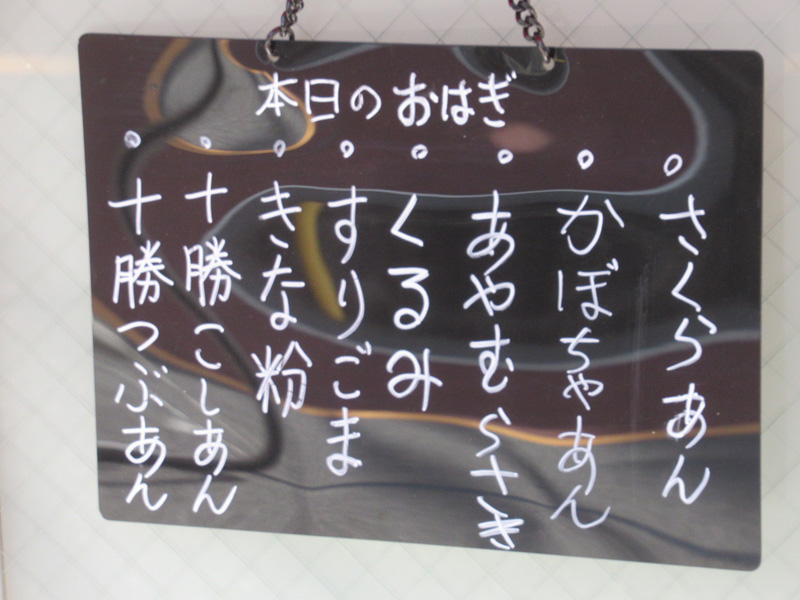 本日のおはぎ
。さくらあん
。かぼちゃあん
。あやむらさき
。くるみ
。すりごま
。きな粉
。十勝こしあん
。十勝つぶあん